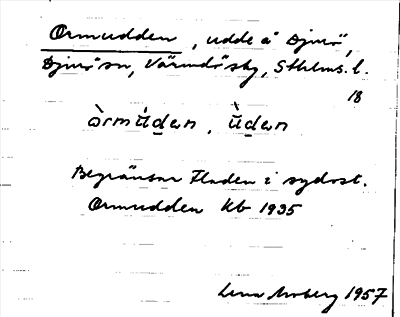 Ormudden, udde å Djurö,
Djurö sn, Värmdö skg, Sthlms. l.
18
òrmúdan, ùdan
Begränsar Fladen i sydost.
Ormudden kb 1935
Lena Moberg 1957